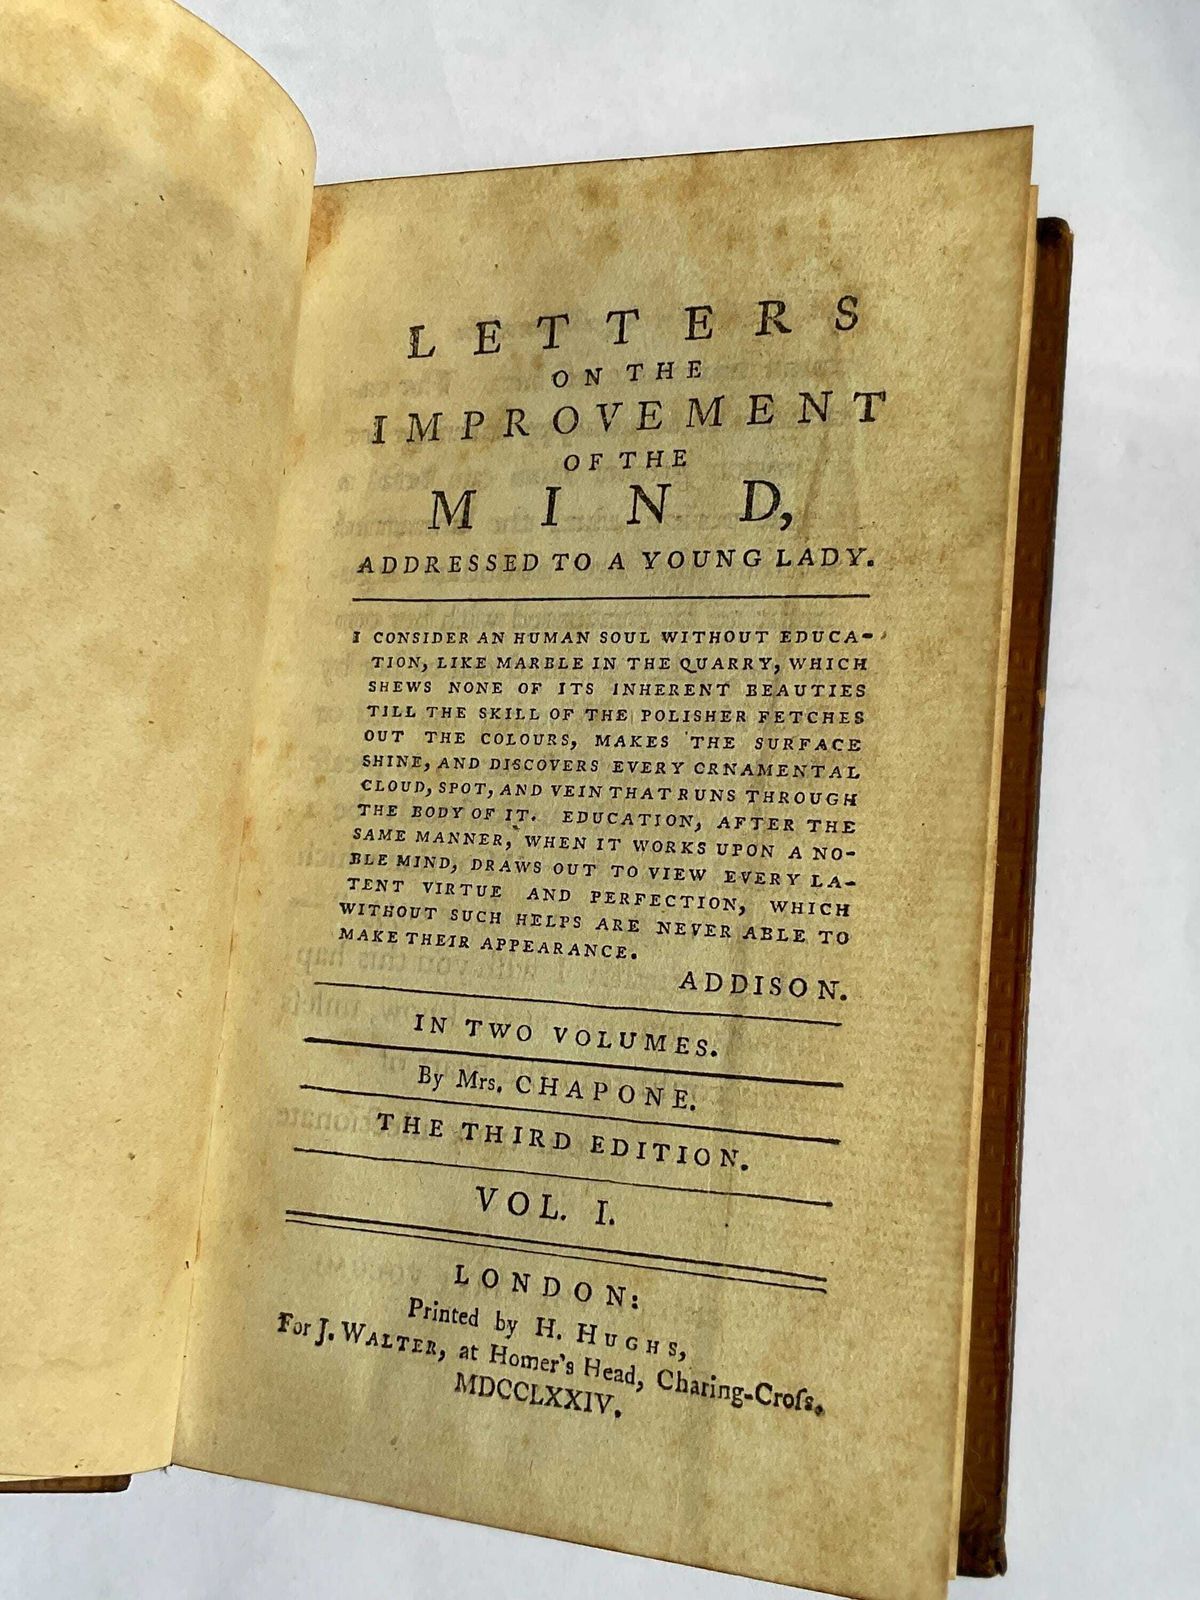 LETTERS
ON THE
IMPROVEMENT
OF THE
MIND,
ADDRESSED TO A YOUNG LADY.
I CONSIDER AN HUMAN SOUL WITHOUT EDUCA-
TION, LIKE MARBLE IN THE QUARRY, WHICH
SHEWS NONE OF ITS INHERENT BEAUTIES
TILL THE SKILL OF THE POLISHER FETCHES
OUT THE COLOURS, MAKES THE SURFACE
SHINE, AND DISCOVERS EVERY CRNAMENTAL
CLOUD, SPOT, AND VEIN THAT RUNS THROUGH
THE BODY OF IT. EDUCATION, AFTER THE
SAME MANNER, WHEN IT WORKS UPON A NO-
BLE MIND, DRAWS OUT TO VIEW EVERY LA-
TENT VIRTUE AND PERFECTION, WHICH
WITHOUT SUCH HELPS ARE NEVER ABLE TO
MAKE THEIR APPEARANCE.
ADDISON.
IN TWO VOLUMES.
By Mrs. CHAPONE.
THE THIRD EDITION.
VOL. I.
LONDON:
Printed by H. HUGHS,
For J. WALTER, at Homer's Head, Charing-Croſs.
MDCCLXXIV.